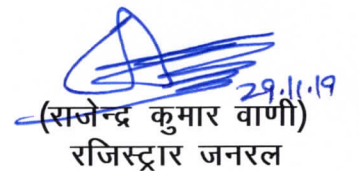 29.11.19
(राजेन्द्र कुमार वाणी)
रजिस्ट्रार जनरल